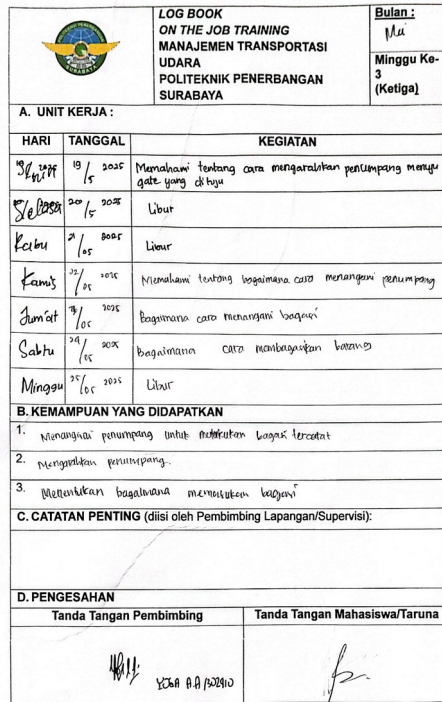 LOG BOOK
ON THE JOB TRAINING
MANAJEMEN TRANSPORTASI
UDARA
POLITEKNIK PENERBANGAN
SURABAYA
Bulan :
Mei
Minggu Ke-
3
(Ketiga)
SURABAYA
A. UNIT KERJA :
HARI TANGGAL KEGIATAN
Senin 19/5 2025 Memahami tentang cara mengarahkan penumpang menuju
gate yang dituju
Selasa 20/5 2025 Libur
Rabu 21/05 2025 Libur
Kamis 22/05 2025 Memahami tentang bagaimana cara menangani penumpang
Jum'at 23/05 2025 Bagaimana cara menangani bagasi
Sabtu 24/05 2025 Bagaimana cara membagasikan barang
Minggu 25/05 2025 Libur
B. KEMAMPUAN YANG DIDAPATKAN
1. Menangani penumpang untuk melakukan bagasi tercatat
2. Mengarahkan penumpang.
3. Menentukan bagaimana memasukan bagasi
C. CATATAN PENTING (diisi oleh Pembimbing Lapangan/Supervisi):
D. PENGESAHAN
Tanda Tangan Pembimbing Tanda Tangan Mahasiswa/Taruna
YOGA A.A /302910